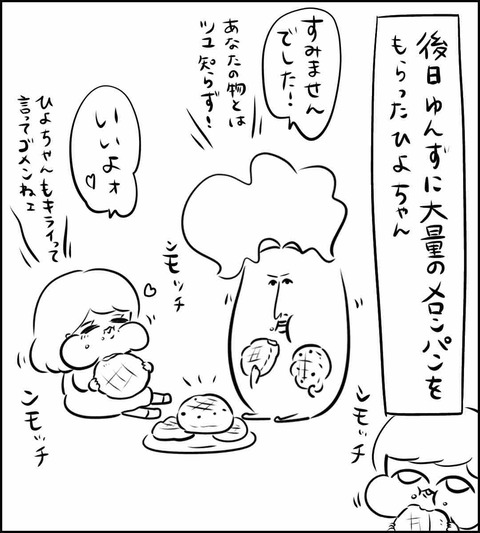 後日ゆんずに大量のメロンパンを
もらったひよちゃん
すみません
でした!
あなたの物とは
ツユ知らず!
いいよォ♡
ひよちゃんもキライって
言ってゴメンねェ
ンモッチ
ンモッチ
ンモッチ